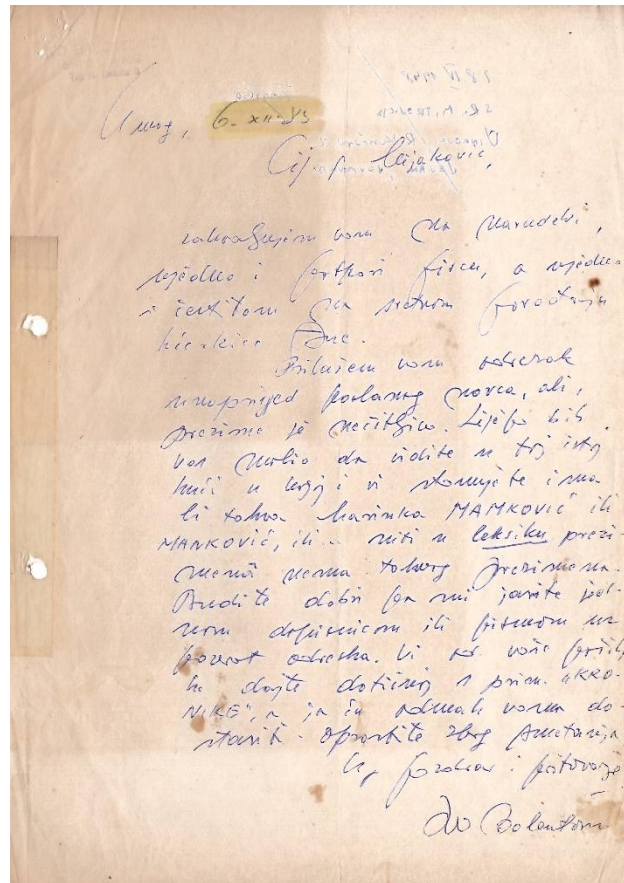 Umag, 6. XII. 83
Cij. g. Mijaković,
zahvaljujem vam na narudžbi,
ujedno i pismu, a ujedno
i čestitam na sretnom porođaju
kćerkice Ane.
Prilažem vam odrezak
unaprijed poslanog novca, ali,
prezime je nečitljivo. Lijepo bih
vas molio da vidite u toj istoj
kući u kojoj i vi stanujete ima
li takva Marinka MAMKOVIĆ ili
MANKOVIĆ, ili niti u leksiku prezi-
mena nema takvog prezimena.
Budite dobri pa mi javite
dopisnicom ili pismom uz
povrat odreska. Vi od vaše
dajte dotičnoj 1 prim. "KRO-
NIKE", a ja ću odmah vama do-
staviti. Oprostite zbog smetanja
Uz pozdrav i poštovanje